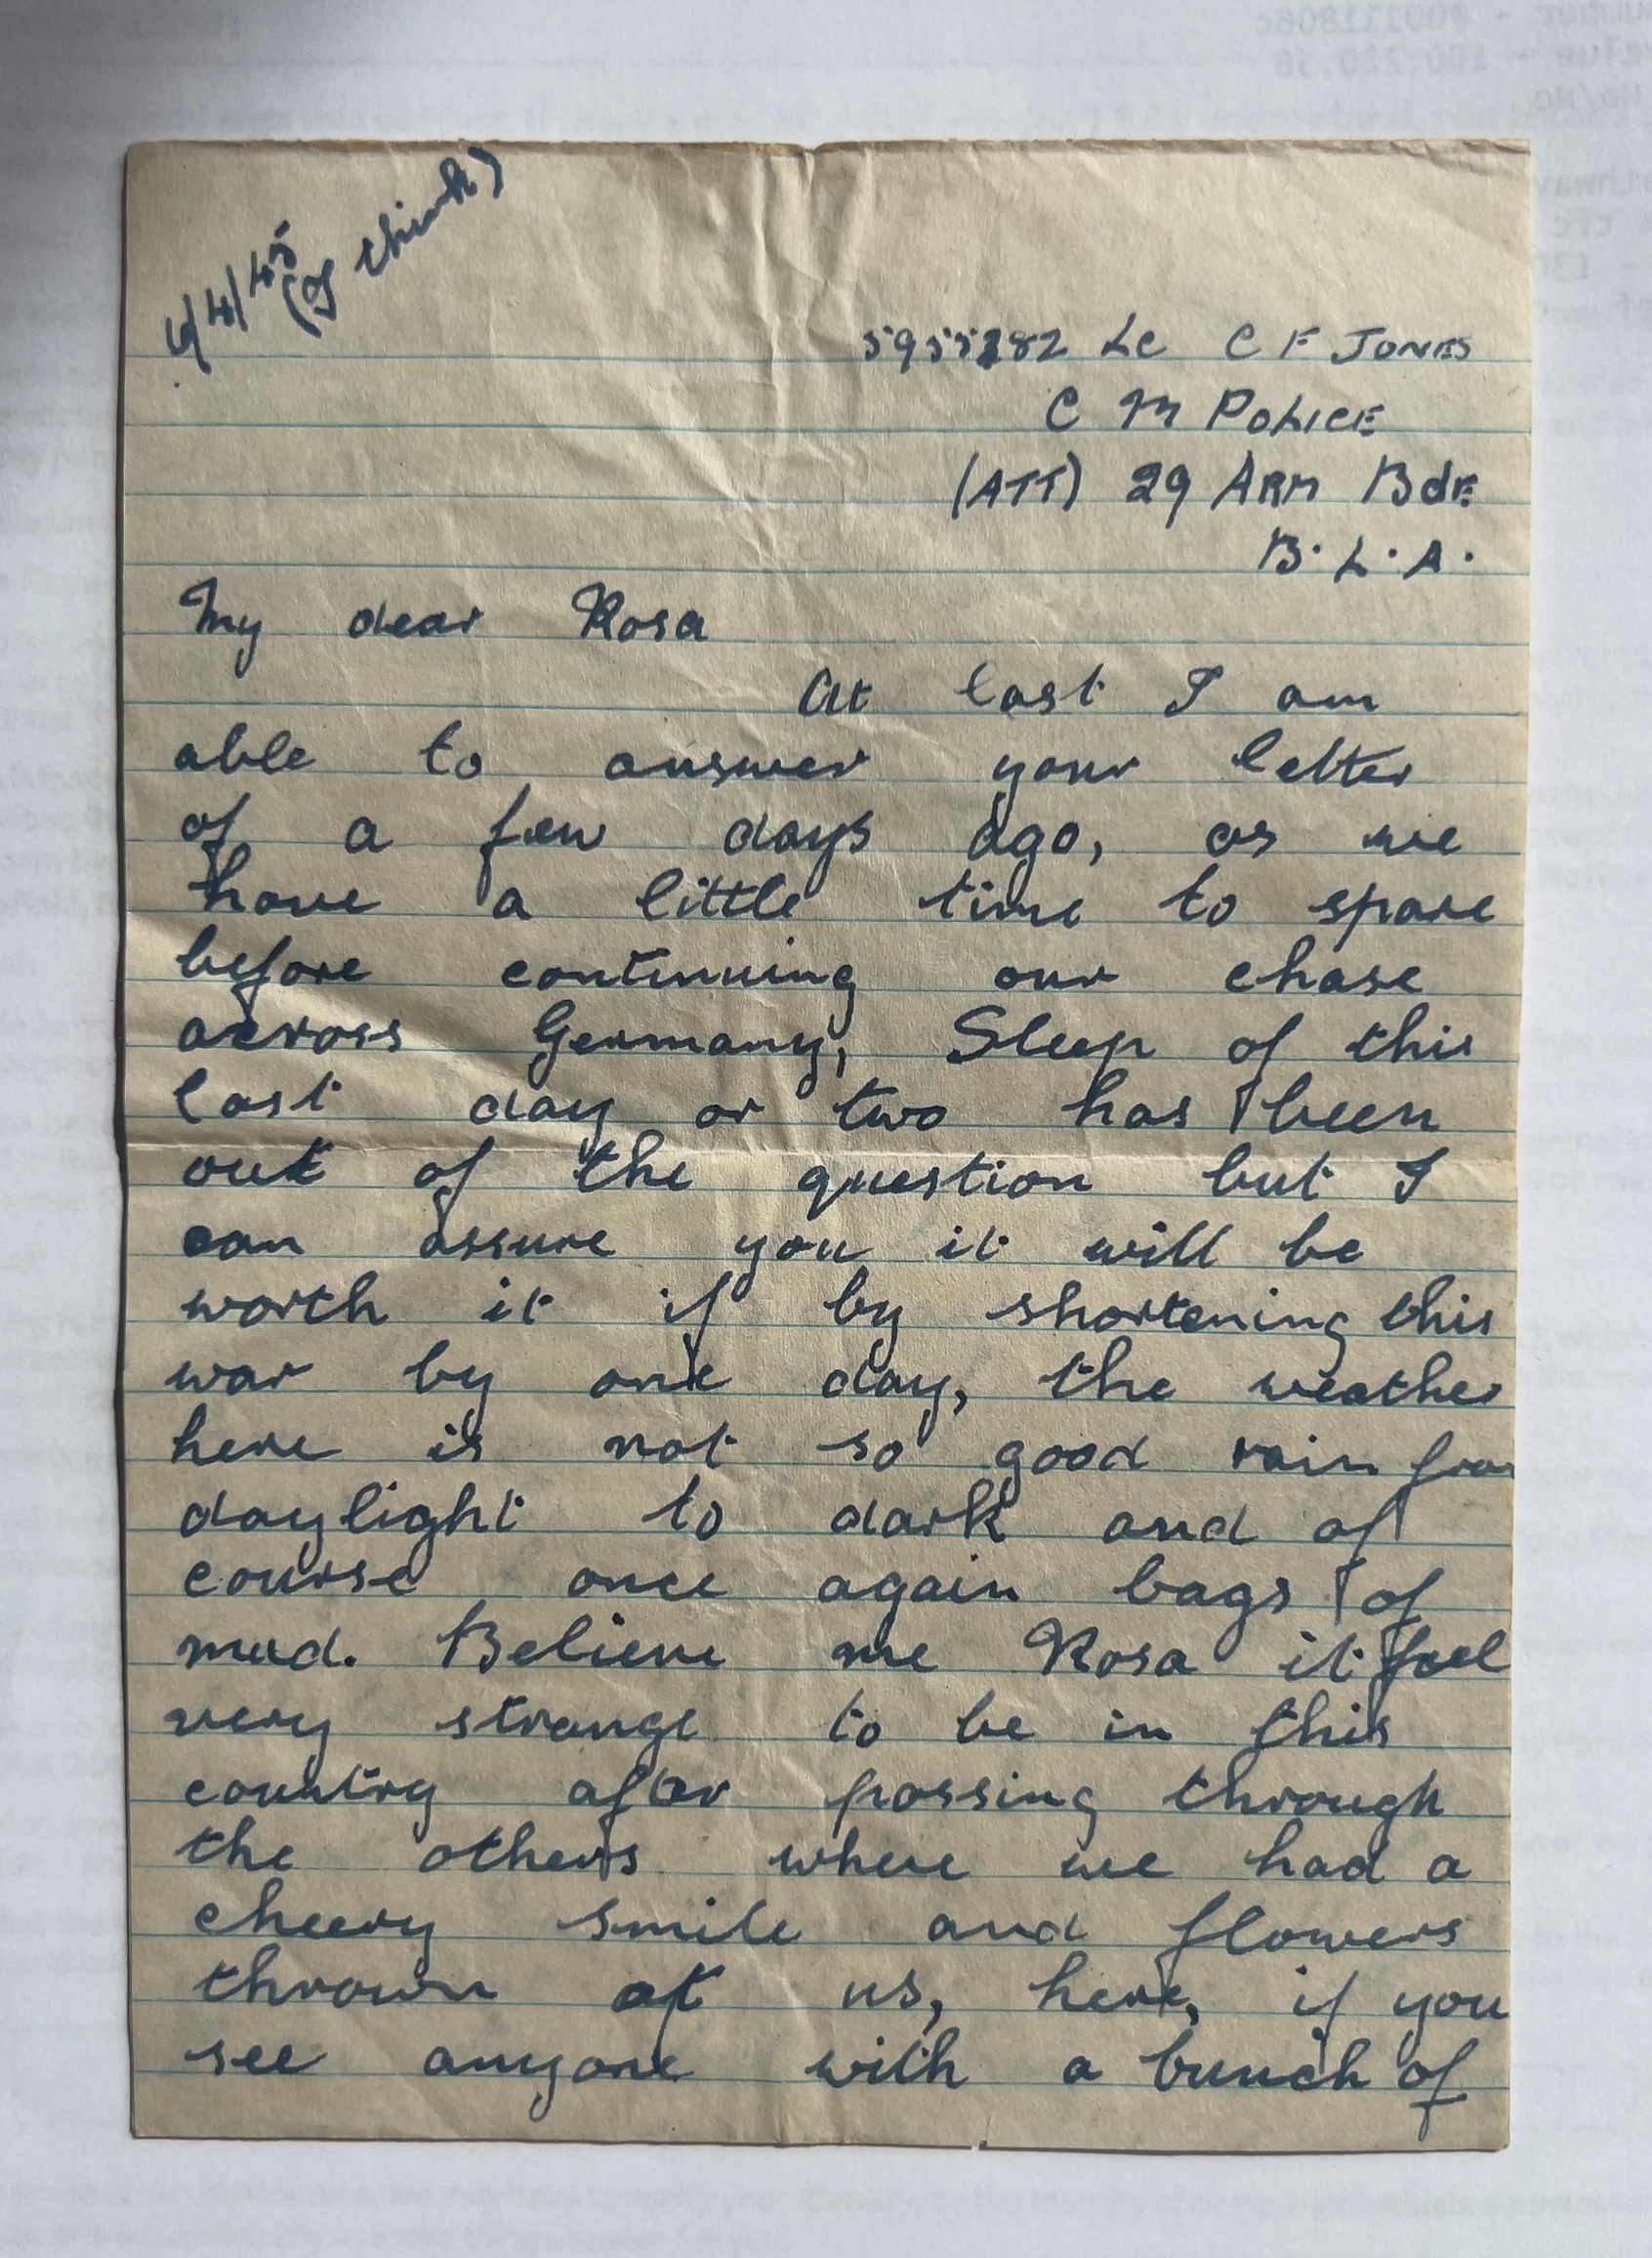 4/45
(I think)
LC C F JONES
C M POLICE
(ATT) 29 ARM BdE
B.L.A.
My dear Rosa
At last I am
able to answer your letter
of a few days ago, as we
have a little time to spare
before continuing our chase
across Germany, Sleep of this
last day or two has been
out of the question but I
can assure you it will be
worth it if by shortening this
war by one day, the weather
here is not so good rain from
daylight to dark and of
course once again bags of
mud. Believe me Rosa it feel
very strange to be in this
country after passing through
the others where we had a
cheery smile and flowers
thrown at us, here, if you
see anyone with a bunch of